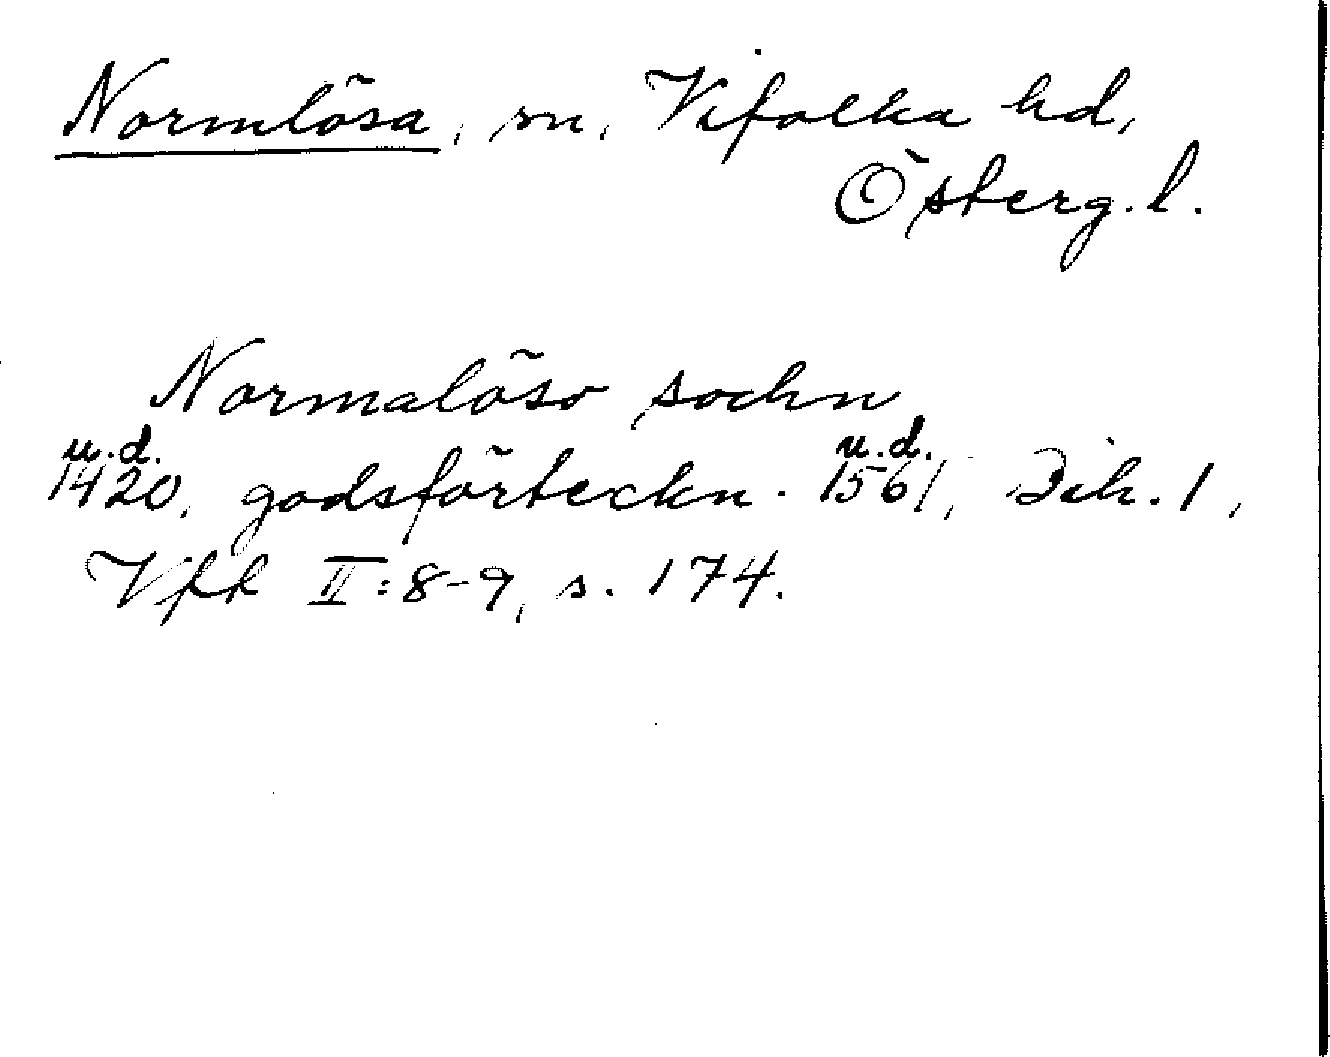 Normlösa, sn, Vifolka hd,
Österg. l.
Normalöso sochn
u.d. u.d.
1420, godsförteckn. 1561, Dih. 1,
Vfk II:8-9, s. 174.